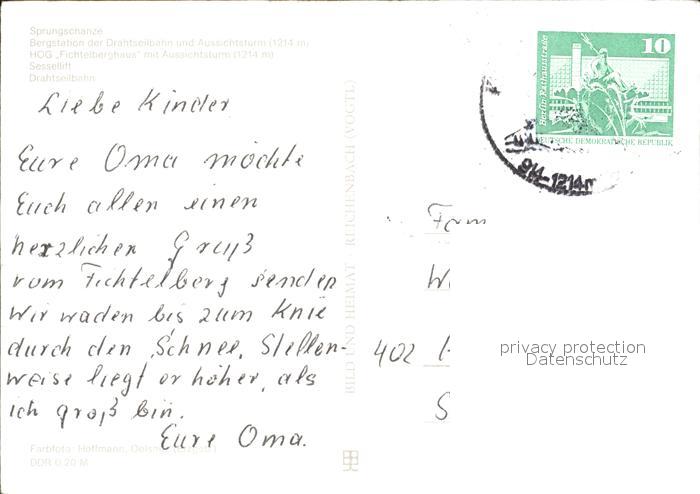 Sprungschanze
Bergstation der Drahtseilbahn und Aussichtsturm (1214 m)
HOG „Fichtelberghaus" mit Aussichtsturm (1214 m)
Sessellift
Drahtseilbahn
Liebe Kinder
Eure Oma möchte
Euch allen einen
herzlichen Gruß
vom Fichtelberg senden
Wir waden bis zum Knie
durch den Schnee. Stellen-
weise liegt er höher, als
ich groß bin.
Eure Oma.
Farbfoto: Hoffmann,
DDR 0,20 M
BILD UND HEIMAT · REICHENBACH (VOGTL)
10
Berlin, Rathausstraße
DEUTSCHE DEMOKRATISCHE REPUBLIK
914-1214m
Fam
W
402
S
privacy protection
Datenschutz